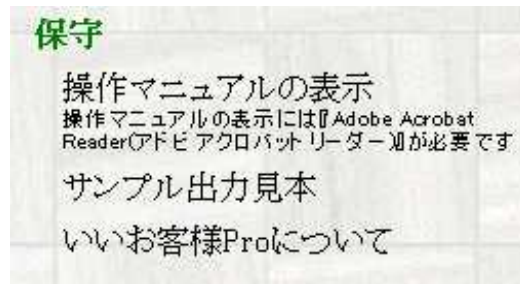 保守
操作マニュアルの表示
操作マニュアルの表示には『Adobe Acrobat
Reader(アドビ アクロバット リーダー)』が必要です
サンプル出力見本
いいお客様Proについて